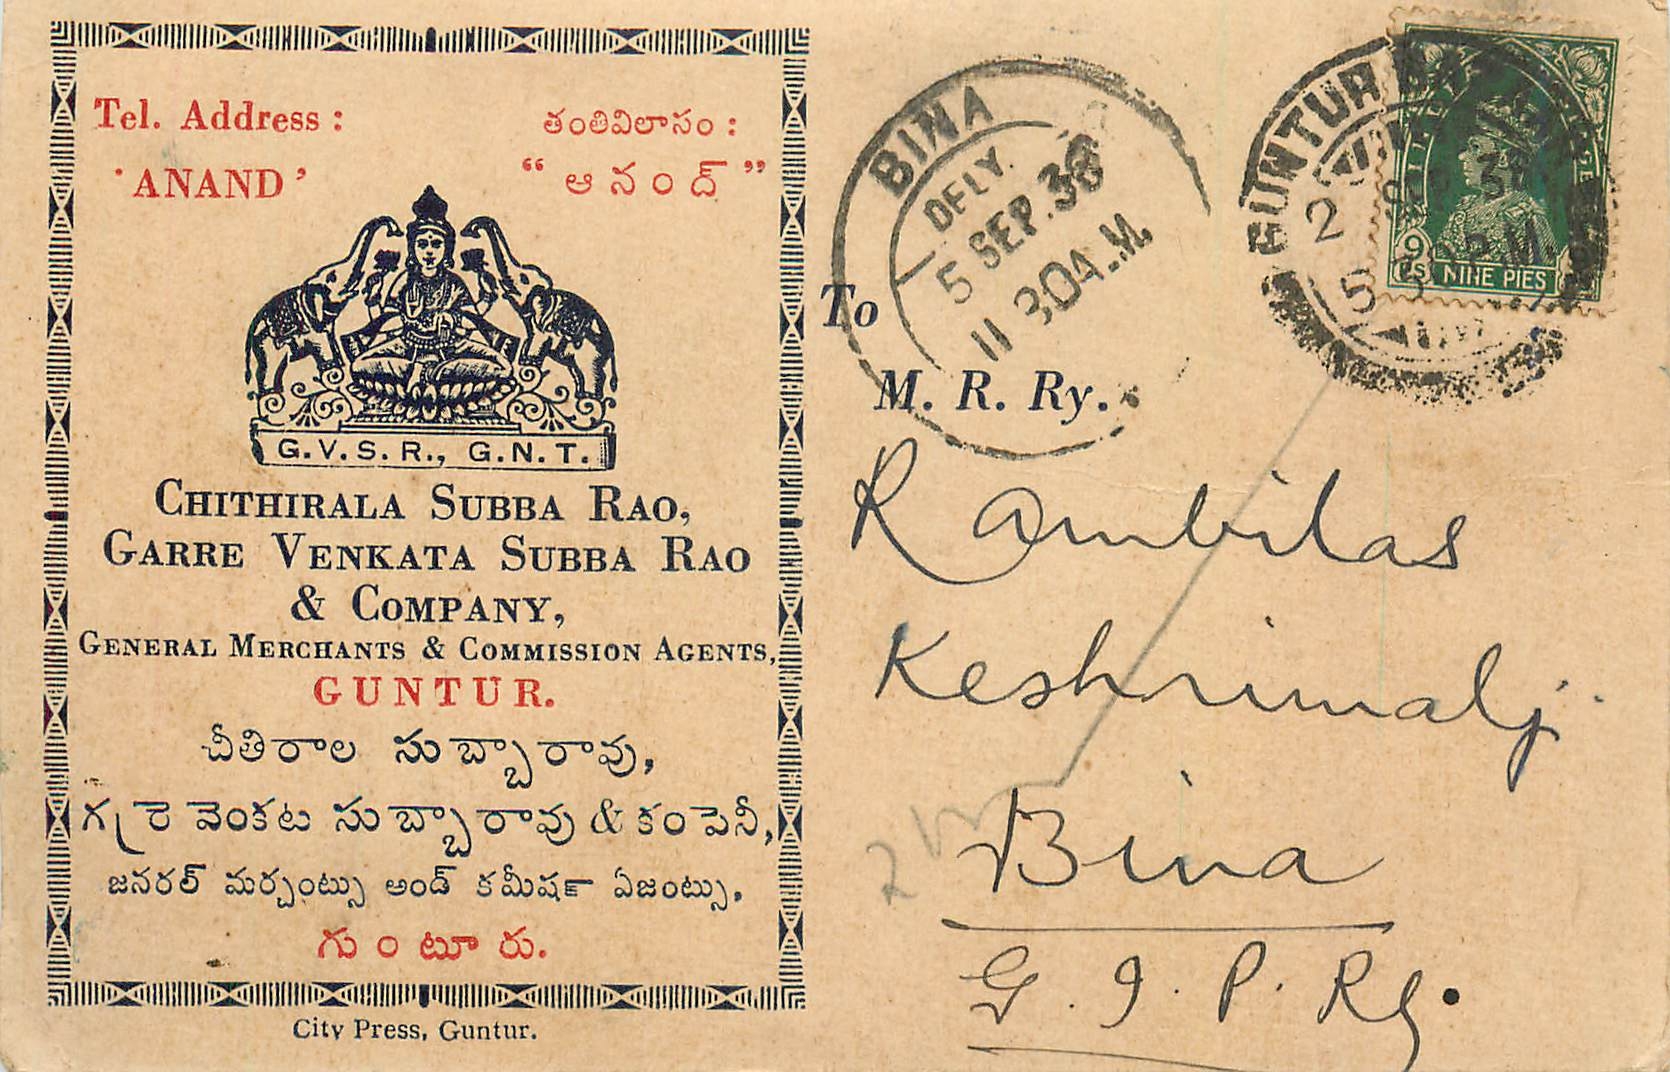 Tel. Address :
'ANAND'
తంతివిలాసం :
“ ఆనంద్ ”
G.V.S.R., G.N.T.
CHITHIRALA SUBBA RAO,
GARRE VENKATA SUBBA RAO
& COMPANY,
GENERAL MERCHANTS & COMMISSION AGENTS,
GUNTUR.
చీతిరాల సుబ్బారావు,
గర్రె వెంకట సుబ్బారావు & కంపెనీ,
జనరల్ మర్చంట్సు అండ్ కమీషన్ ఏజంట్సు,
గుంటూరు.
City Press, Guntur.
BINA
DELY.
5 SEP. 38
11 30A.M.
GUNTUR
NINE PIES
9
PS
To
M. R. Ry.
Rambilas
Keshrimalji
Bina
G. I. P. Ry.